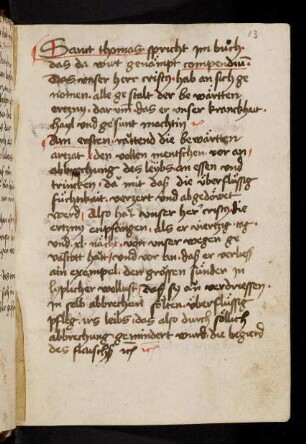 13
Sanct thomas spricht jm buch
das da wirt genampt compendiu.
das vnser herr cristus hab an sich ge
nomen alle gestalt der bewärtten
ertzny. dar vm das er vnser kranckhait
hayl vnd gesunt machtin
Am ersten rattend die bewärtten
artzat den vollen mentschen vor an
abbrechung des leibs an essen vnd
trincken da mit das die überflüssig
füchtikait verzert vnd abgedöwet
werd Also hat vnser her cristus die
ertzny enpfangen als er viertzig tag
vnd xl nächt von vnser wegen ge
vastott hatt vnd vor an das er verlies
ain exampel den grössen sünder in
liplicher wollust das sy an verdriessen
in selb abbrechen sölten überflüssig
pfleg irs leibs das also durch sölich
abbrechung gemindert wurd die begierd
des flaischs